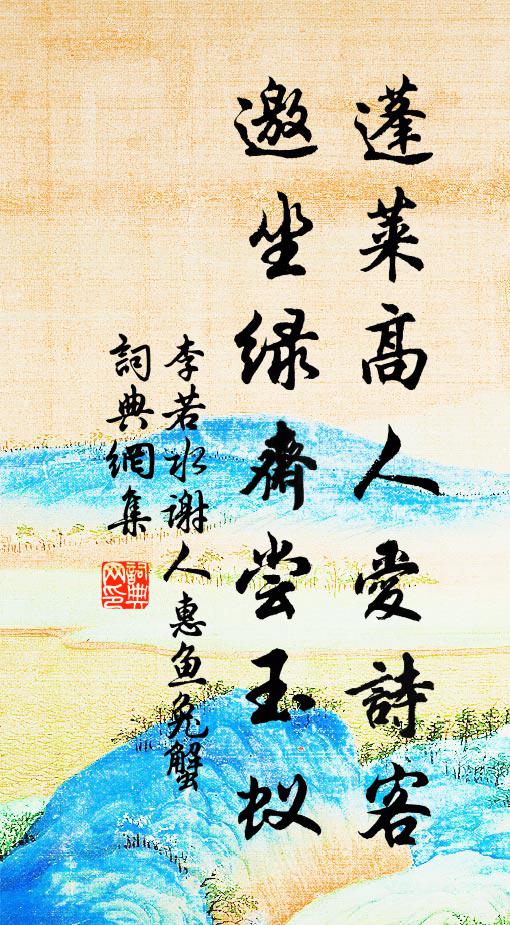 蓬莱高人爱詩客
邀坐绿齊尝玉蚁
李若水谢人惠鱼兔蟹
詞典網集
詞典网印